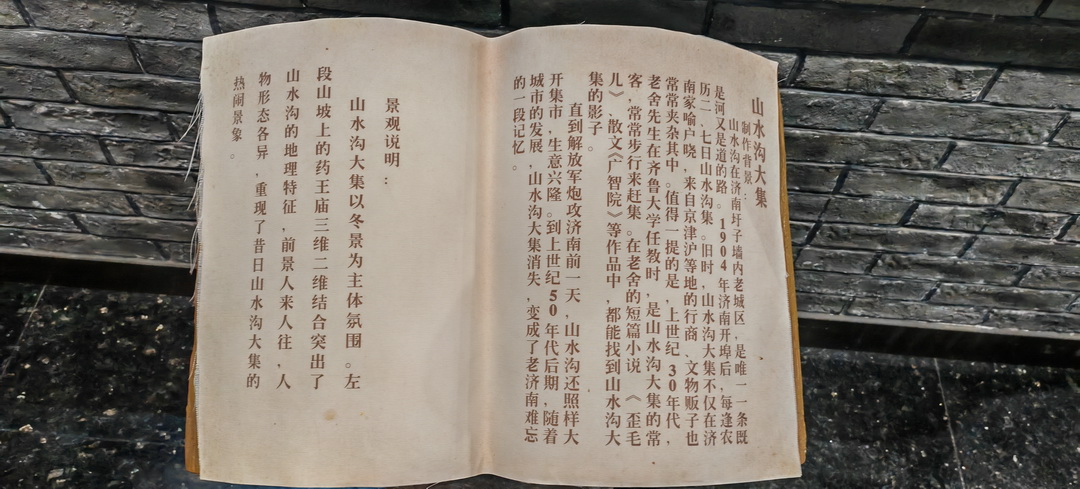 山水沟大集
制作背景：
山水沟在济南圩子墙内老城区，是唯一一条既
是河又是道的路。1904年济南开埠后，每逢农
历二，七日山水沟集。旧时，山水沟大集不仅在济
南家喻户晓，来自京津沪等地的行商、文物贩子也
常常夹杂其中。值得一提的是，上世纪30年代，
老舍先生在齐鲁大学任教时，是山水沟大集的常
客，常常步行来赶集。在老舍的短篇小说《歪毛
儿》，散文《广智院》等作品中，都能找到山水沟大
集的影子。
直到解放军炮攻济南前一天，山水沟还照样大
开集市，生意兴隆。到上世纪50年代后期，随着
城市的发展，山水沟大集消失，变成了老济南难忘
的一段记忆。
景观说明：
山水沟大集以冬景为主体氛围。左
段山坡上的药王庙三维二维结合突出了
山水沟的地理特征，前景人来人往，人
物形态各异，重现了昔日山水沟大集的
热闹景象。